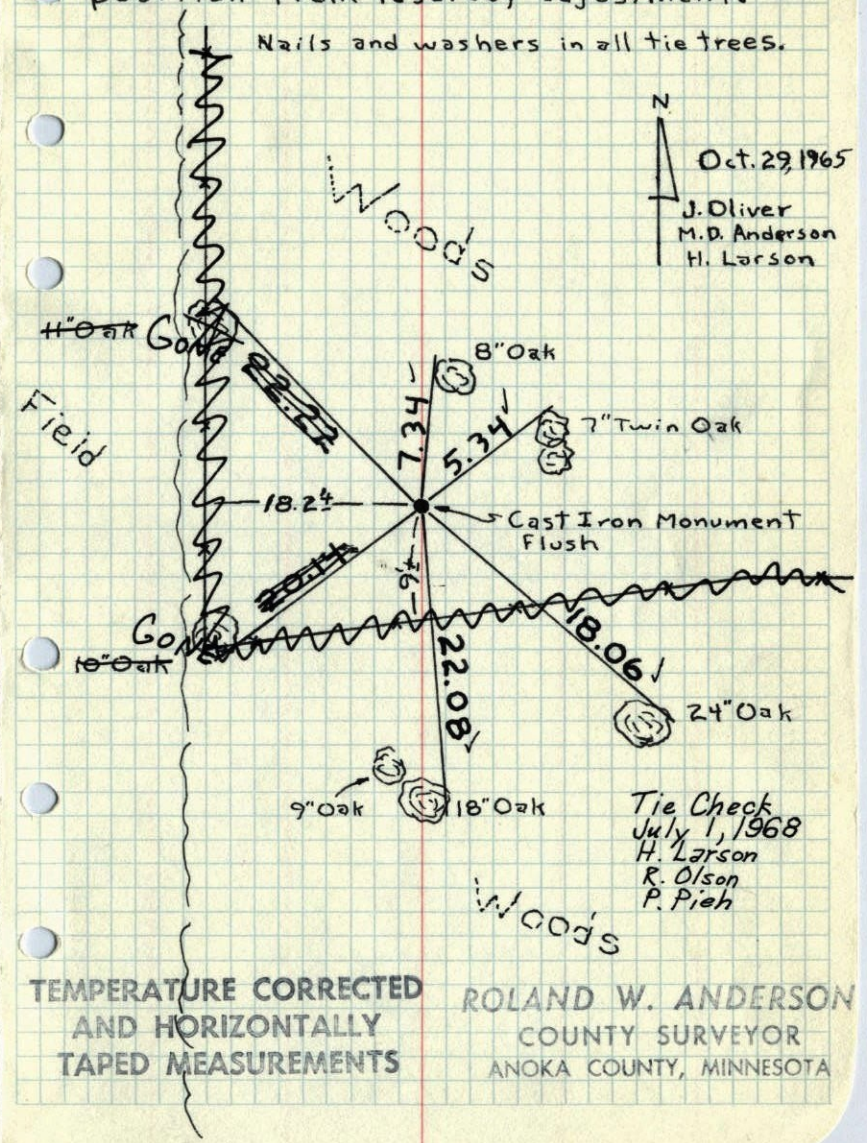 Nails and washers in all tie trees.
N
Oct. 29, 1965
J. Oliver
M.D. Anderson
H. Larson
Woods
11" Oak
Gone
22.22
8" Oak
7.34
5.34
7" Twin Oak
Field
18.24
Cast Iron Monument
Flush
20.14
Gone
10" Oak
22.08
18.06
24" Oak
9" Oak
18" Oak
Tie Check
July 1, 1968
H. Larson
R. Olson
P. Pieh
Woods
TEMPERATURE CORRECTED
AND HORIZONTALLY
TAPED MEASUREMENTS
ROLAND W. ANDERSON
COUNTY SURVEYOR
ANOKA COUNTY, MINNESOTA